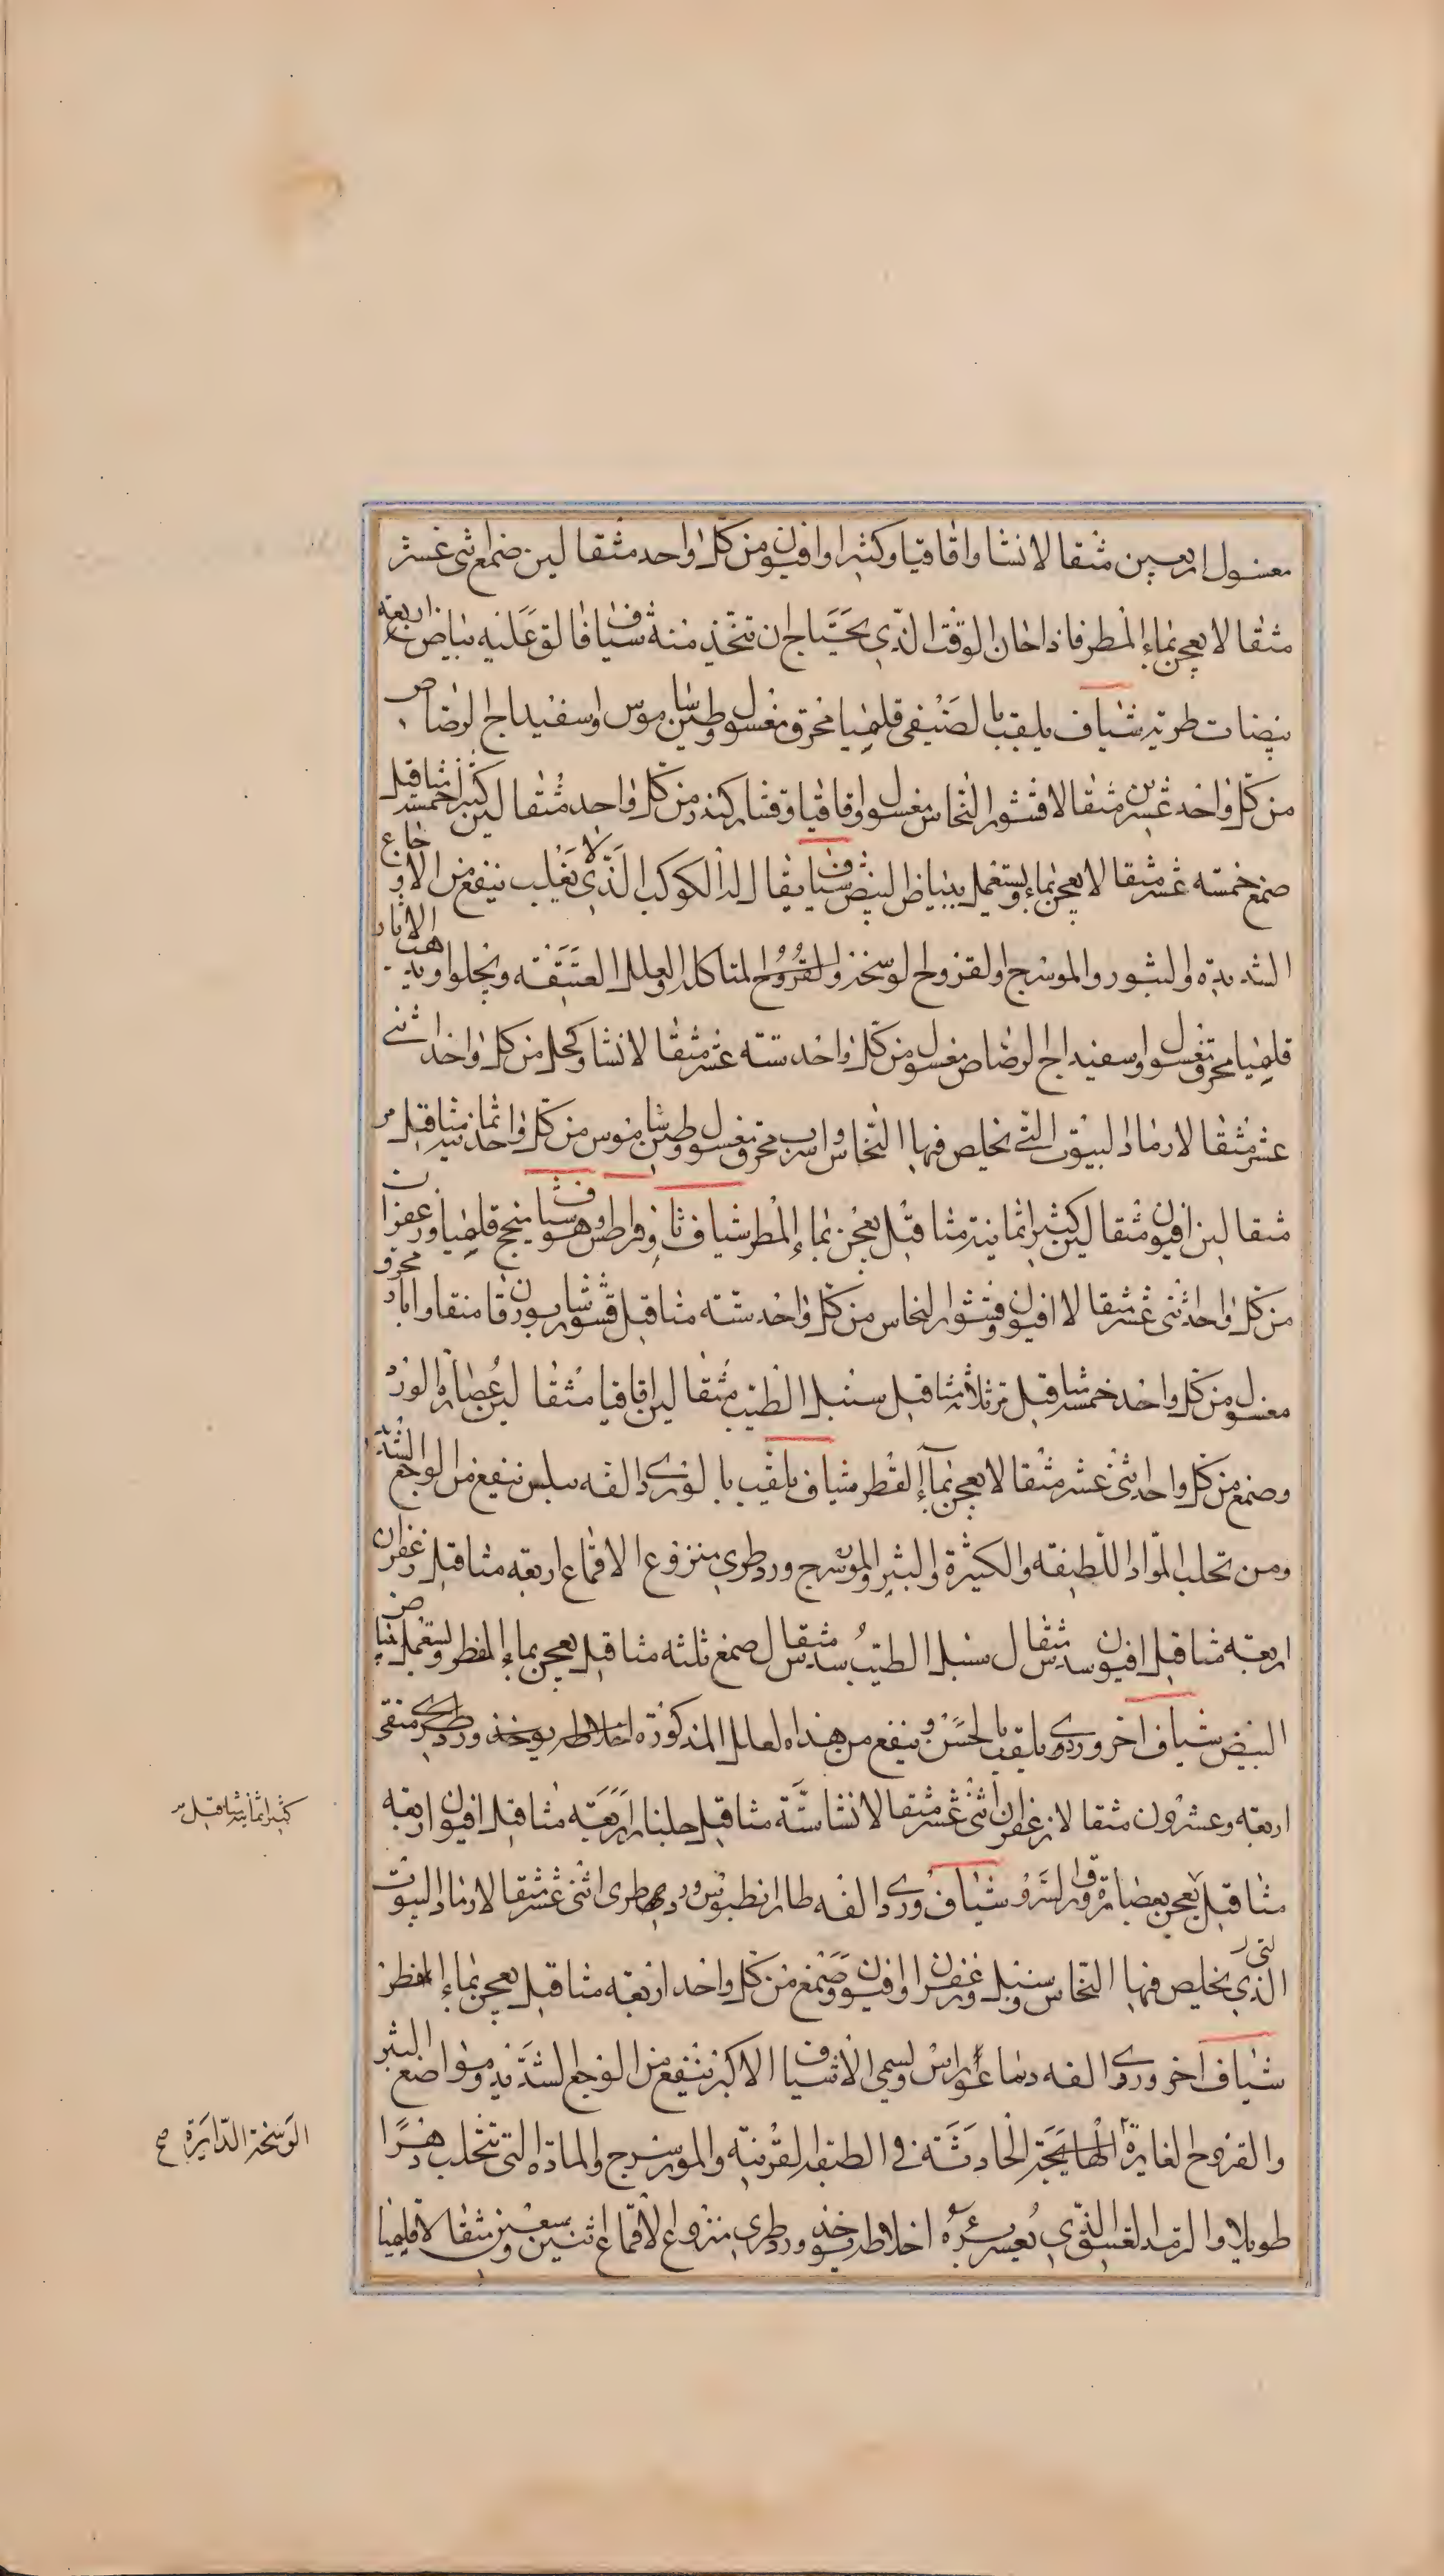 مغسول اربعين مثقالا نشا واقاقيا وكثيرا وافيون من كل واحد مثقالين صمغ اثنى عشر
مثقالا يعجن بماء المطر فاذا حان الوقت الذي يحتاج ان تتخذ منه شيافا فالق عليه بياض اربعة
بيضات طرية شياف يلقب بالصنيفى قليميا محرق مغسول وطين شاموس واسفيداج الرصاص
من كل واحد عشرين مثقالا قشور النحاس مغسول واقاقيا وقشار كندر من كل واحد مثقالين كثيرا خمسة مثاقيل
صمغ خمسة عشر مثقالا يعجن بماء ويستعمل ببياض البيض شياف يقال له الكوكب الذي لا يغلب ينفع من الاوجاع
الشديدة والبثور والمورسرج والقروح الوسخة والقروح المتاكلة والعلل العتيقة ويجلو ويذهب الاثار
قليميا محرق مغسول واسفيداج الرصاص مغسول من كل واحد ستة عشر مثقالا نشا وكحل من كل واحد اثنى
عشر مثقالا رماد البيوت التي يخلص فيها النحاس واسرب محرق مغسول وطين شاموس من كل واحد ثمانية مثاقيل مر
مثقالين افيون مثقالين كثيرا ثمانية مثاقيل يعجن بماء المطر شياف وهو شيافنج قليميا وزعفران
من كل واحد اثنى عشر مثقالا افيون وقشور النحاس من كل واحد ستة مثاقيل قشور شابورقان منقا وابار محرق
مغسول من كل واحد خمسة مثاقيل مر ثلاثة مثاقيل سنبل الطيب مثقالين اقاقيا مثقالين عصارة الورد
وصمغ من كل واحد اثنى عشر مثقالا يعجن بماء القطر شياف يلقب بالوردي الفه نيلس ينفع من الوجع الشديد
ومن تحلب المواد اللطيفة والكثيرة والبثر والمورسرج ورد طري منزوع الاقماع اربعة مثاقيل زعفران
اربعة مثاقيل افيون سدس مثقال سنبل الطيب سدس مثقال صمغ ثلثة مثاقيل يعجن بماء المطر ويستعمل ببياض
البيض شياف اخر وردي يلقب بالحسن وينفع من هذه العلل المذكورة اخلاطه يوخذ ورد طري منقى
اربعة وعشرون مثقالا زعفران اثنى عشر مثقالا نشا ستة مثاقيل جلنار اربعة مثاقيل افيون اربعة
كثيرا ثمانية مثاقيل مر
مثاقيل يعجن بعصارة ورق السرو شياف وردي الفه طاارنطيوس ورد طرى اثنى عشر مثقالا رماد البيوت
التى الذي يخلص فيها النحاس وسنبل وزعفران وافيون وصمغ من كل واحد اربعة مثاقيل يعجن بماء المطر
شياف اخر وردي الفه ديماغوراس ويسمى الاشياف الاكبر ينفع من الوجع الشديد ومواضع البثر
والقروح الغايرة الهايجة الحادثة في الطبقة القرنية والمورسرج والمادة التي تتحلب دهرا
الوسخة الدايرة صح
طويلا والرمد العتيق الذي يعسر برؤه اخلاطه يوخذ ورد طري منزوع الاقماع اثنين وسبعين مثقالا قليميا